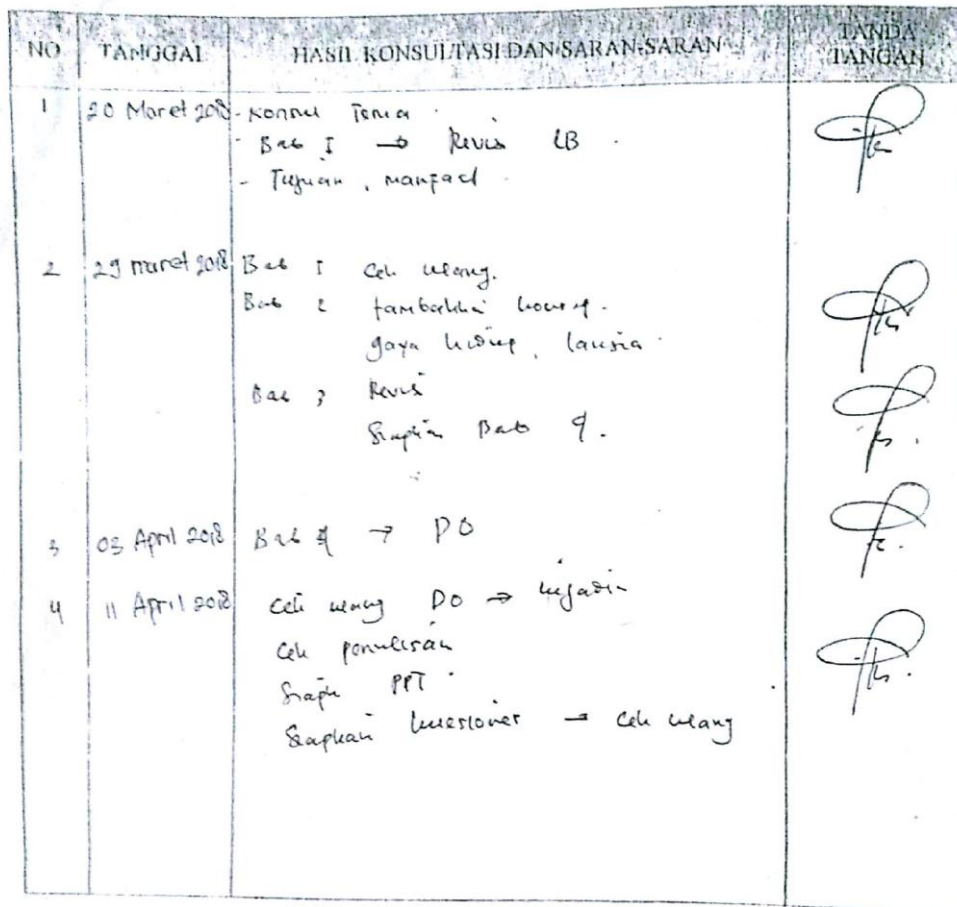 NO TANGGAL HASIL KONSULTASI DAN SARAN-SARAN TANDA TANGAN
1 20 Maret 2018 - Konsul Tema
- Bab I → Revisi LB
- Tujuan, manfaat
2 29 maret 2018 Bab I Cek ulang.
Bab 2 tambahkan
gaya hidup, lansia
Bab 3 Revisi
Siapkan Bab 4.
3 03 April 2018 Bab 4 → DO
4 11 April 2018 Cek ulang DO →
Cek penulisan
Siapkan PPT
Siapkan kuesioner → Cek ulang